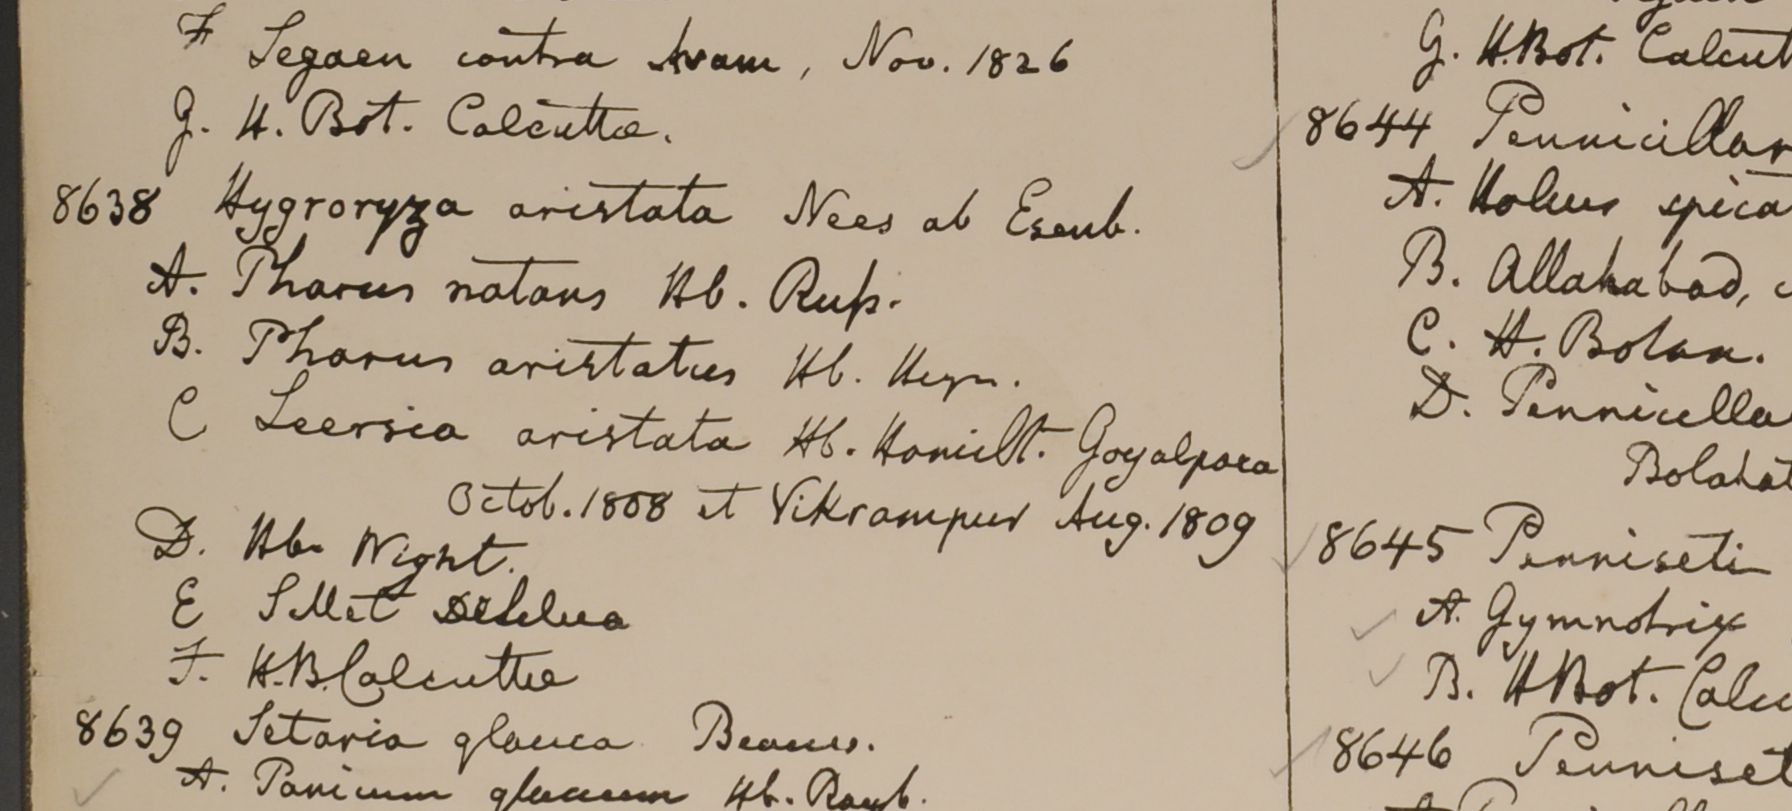 F Segaen contra Avam, Nov. 1826
G. H. Bot. Calcuttae.
8638 Hygroryza aristata Nees ab Esenb.
A. Pharus natans Hb. Rup.
B. Pharus aristatus Hb. Heyn.
C Leersia aristata Hb. Hamilt. Goyalpara
Octob. 1808 et Vikrampur Aug. 1809
D. Hb. Wight.
E Sillet
F. H.B. Calcuttae
8639 Setaria glauca Beauv.
A. Panicum glaucum Hb. Roxb.
G. H.Bot. Calcut
8644 Pennicillar
A. Holcus spica
B. Allahabad,
C. H. Bolan.
D. Pennicella
Bolahat
8645 Penniseti
A. Gymnotrix
B. H Bot. Calcu
8646 Penniset